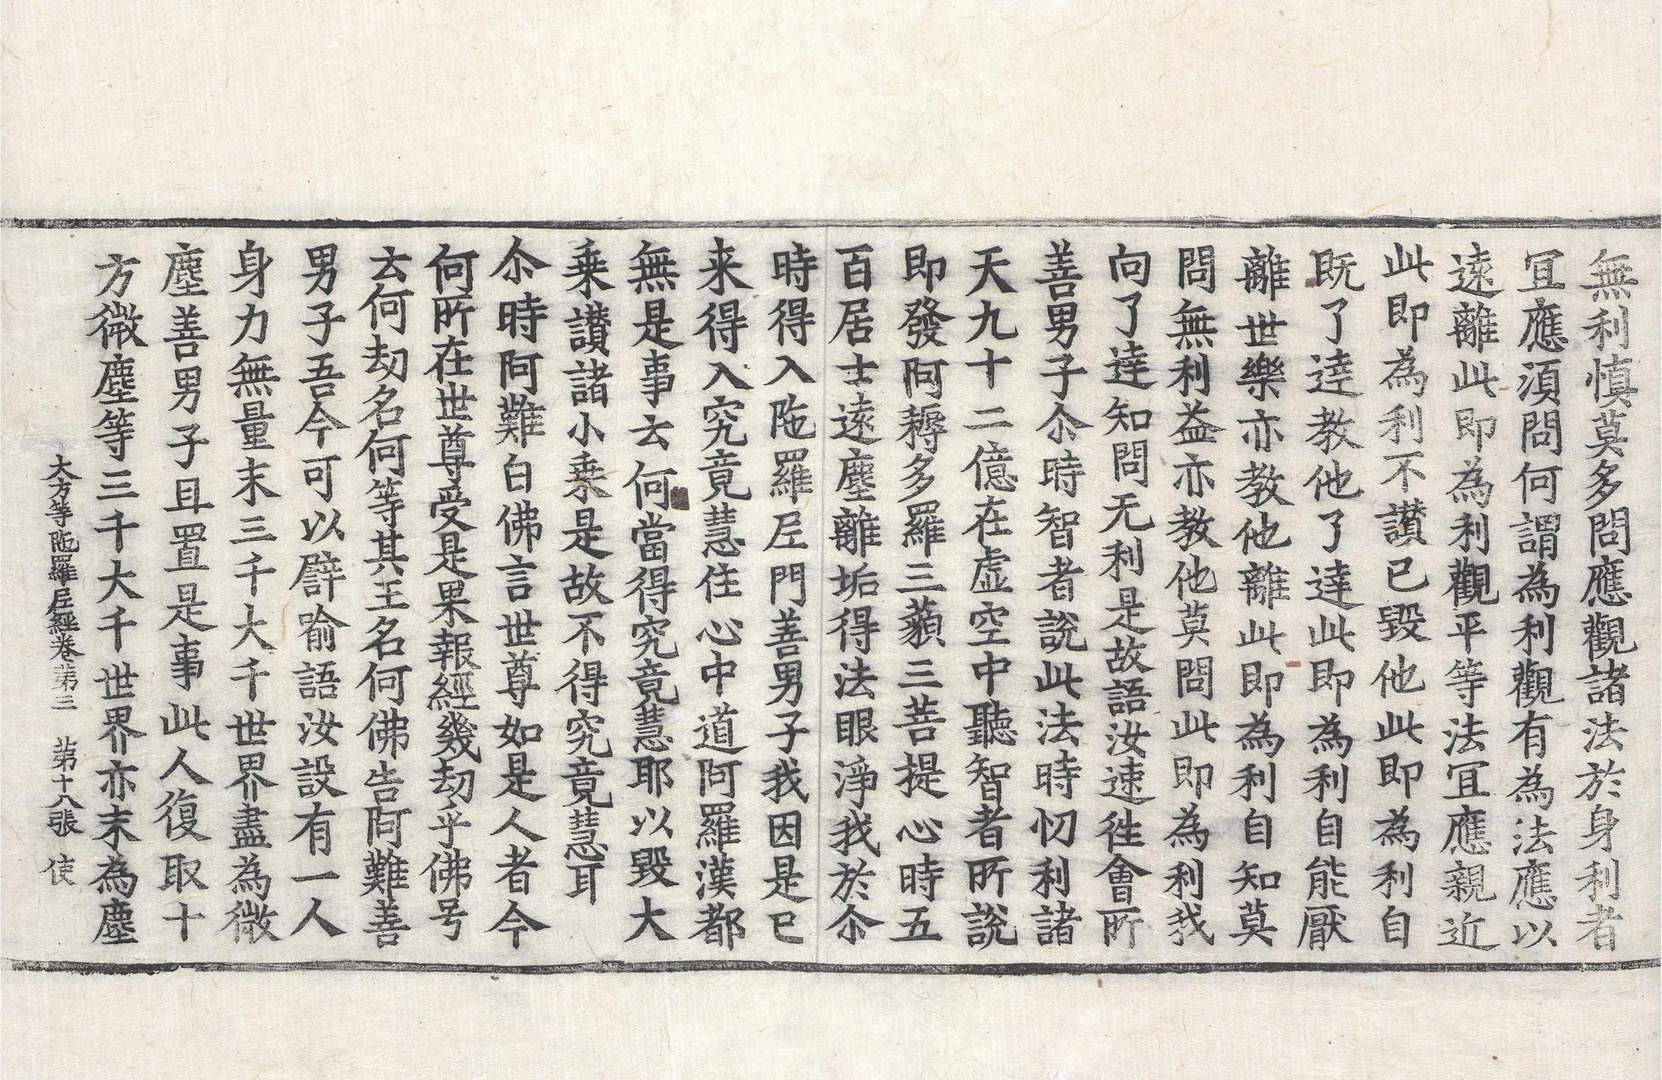 無利慎莫多問應觀諸法於身利者
冝應湏問何謂為利觀有為法應以
遠離此即為利觀平等法冝應親近
此即為利不讃已毀他此即為利自
既了達教他了達此即為利自能厭
離世樂亦教他離此即為利自知莫
問無利益亦教他莫問此即為利我
向了達知問无利是故語汝速徃會所
善男子尒時智者說此法時忉利諸
天九十二億在虛空中聽智者所說
即發阿耨多羅三藐三菩提心時五
百居士遠塵離垢得法眼淨我於尒
時得入陁羅𡰱門善男子我因是已
来得入究竟慧住心中道阿羅漢都
無是事云何當得究竟慧耶以毀大
乗讃諸小乗是故不得究竟慧耳
尒時阿難白佛言世尊如是人者今
何所在世尊受是果報經幾劫乎佛号
云何劫名何等其王名何佛告阿難善
男子吾今可以譬喻語汝設有一人
身力無量末三千大千世界盡為微
塵善男子且置是事此人復取十
方微塵等三千大千世界亦末為塵
大方等陁羅𡰱經卷苐三　苐十八張　使